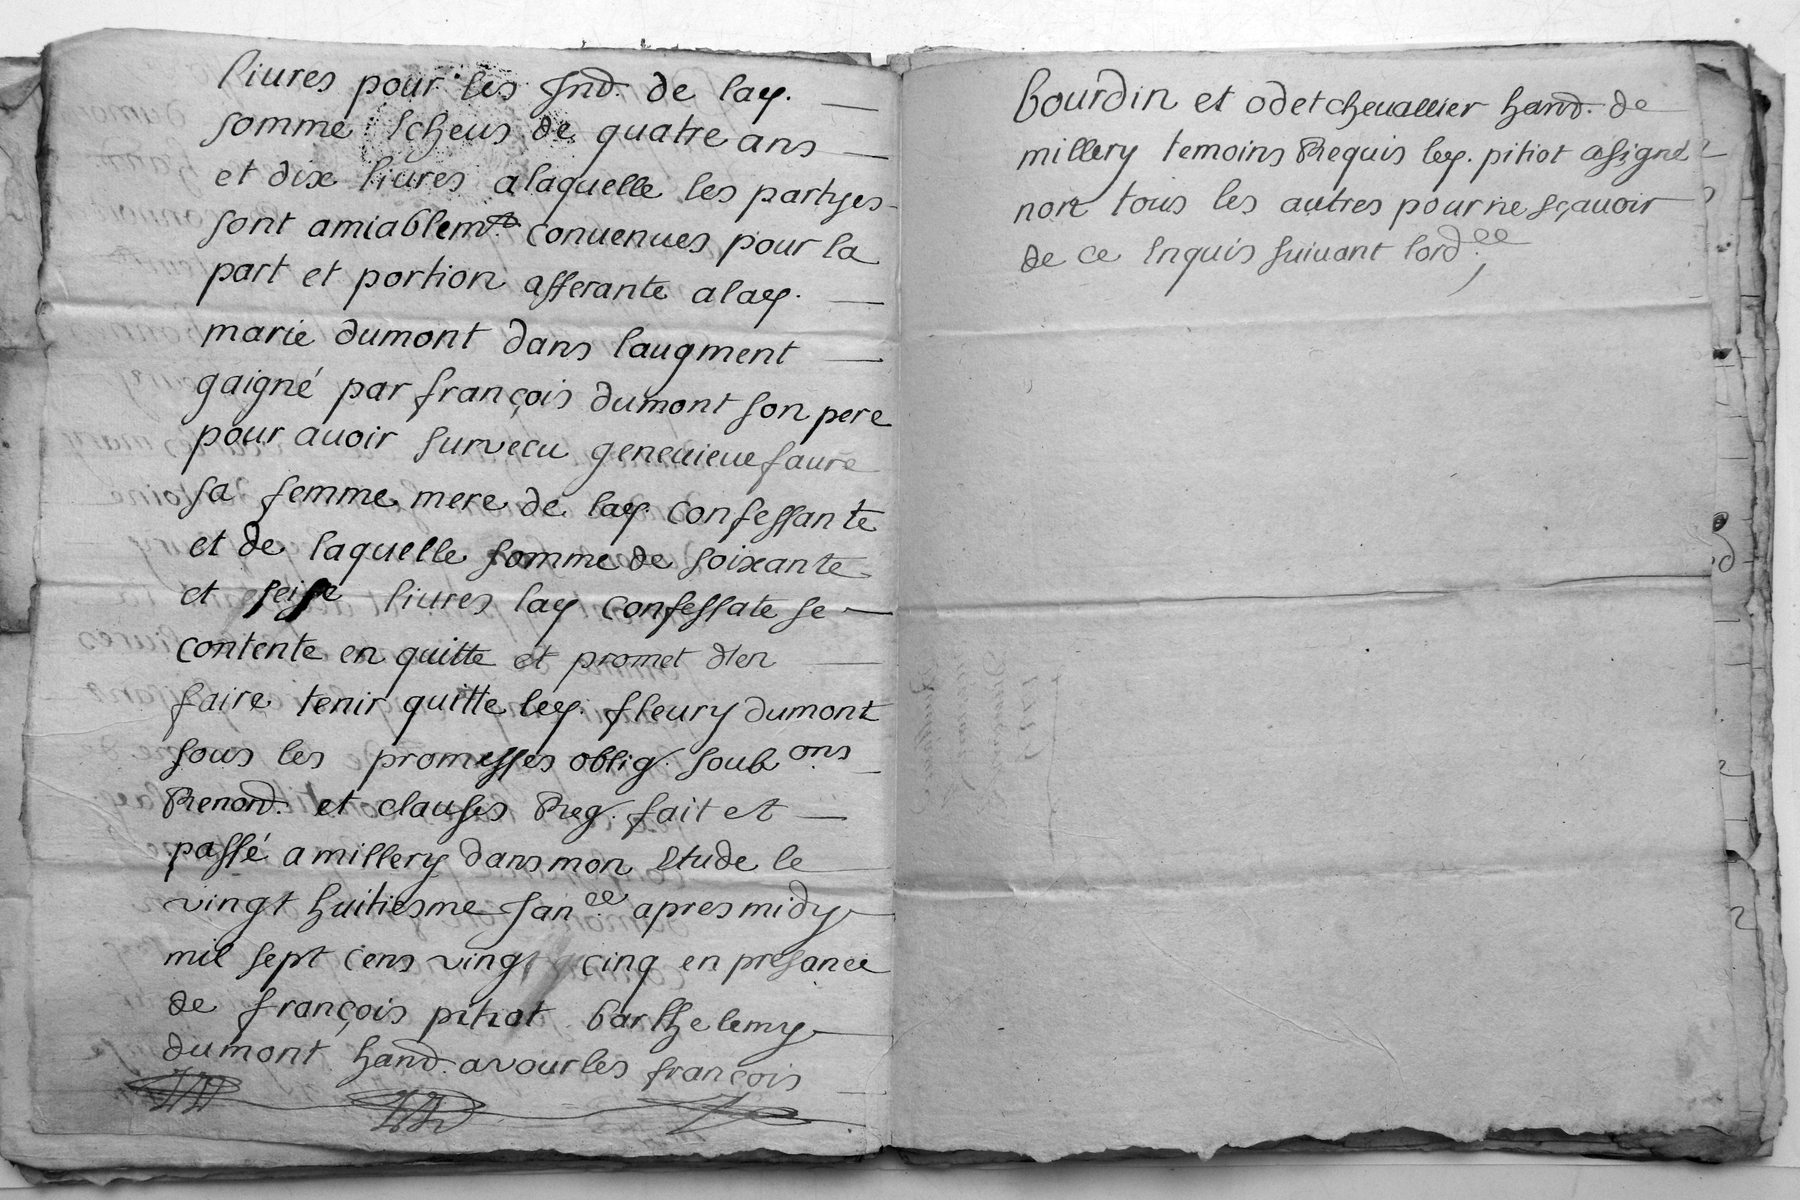 liures pour les Jnd. de lad.
somme Echeus de quatre ans
et dix liures a laquelle les partyes
sont amiablemt conuenues pour la
part et portion afferante a lad.
marie dumont dans laugment
gaigné par françois dumont son pere
pour auoir survecu geneuieue faure
sa femme mere de lad. confessante
et de laquelle somme de soixante
et seise liures lad confessate se
contente en quitte et promet d'en
faire tenir quitte led. fleury dumont
sous les promesses oblig. soub ons
Renond. et clauses Req. fait et
passé a millery dans mon Etude le
vingt huitiesme Jan ce apres midy
mil sept cens vingt cinq en presance
de françois pitiot barthelemy
dumont hand. a vourles françois
bourdin et odet cheuallier hand. de
millery temoins Requis led. pitiot a signé
non tous les autres pour ne sçauoir
de ce Enquis suiuant lord ce